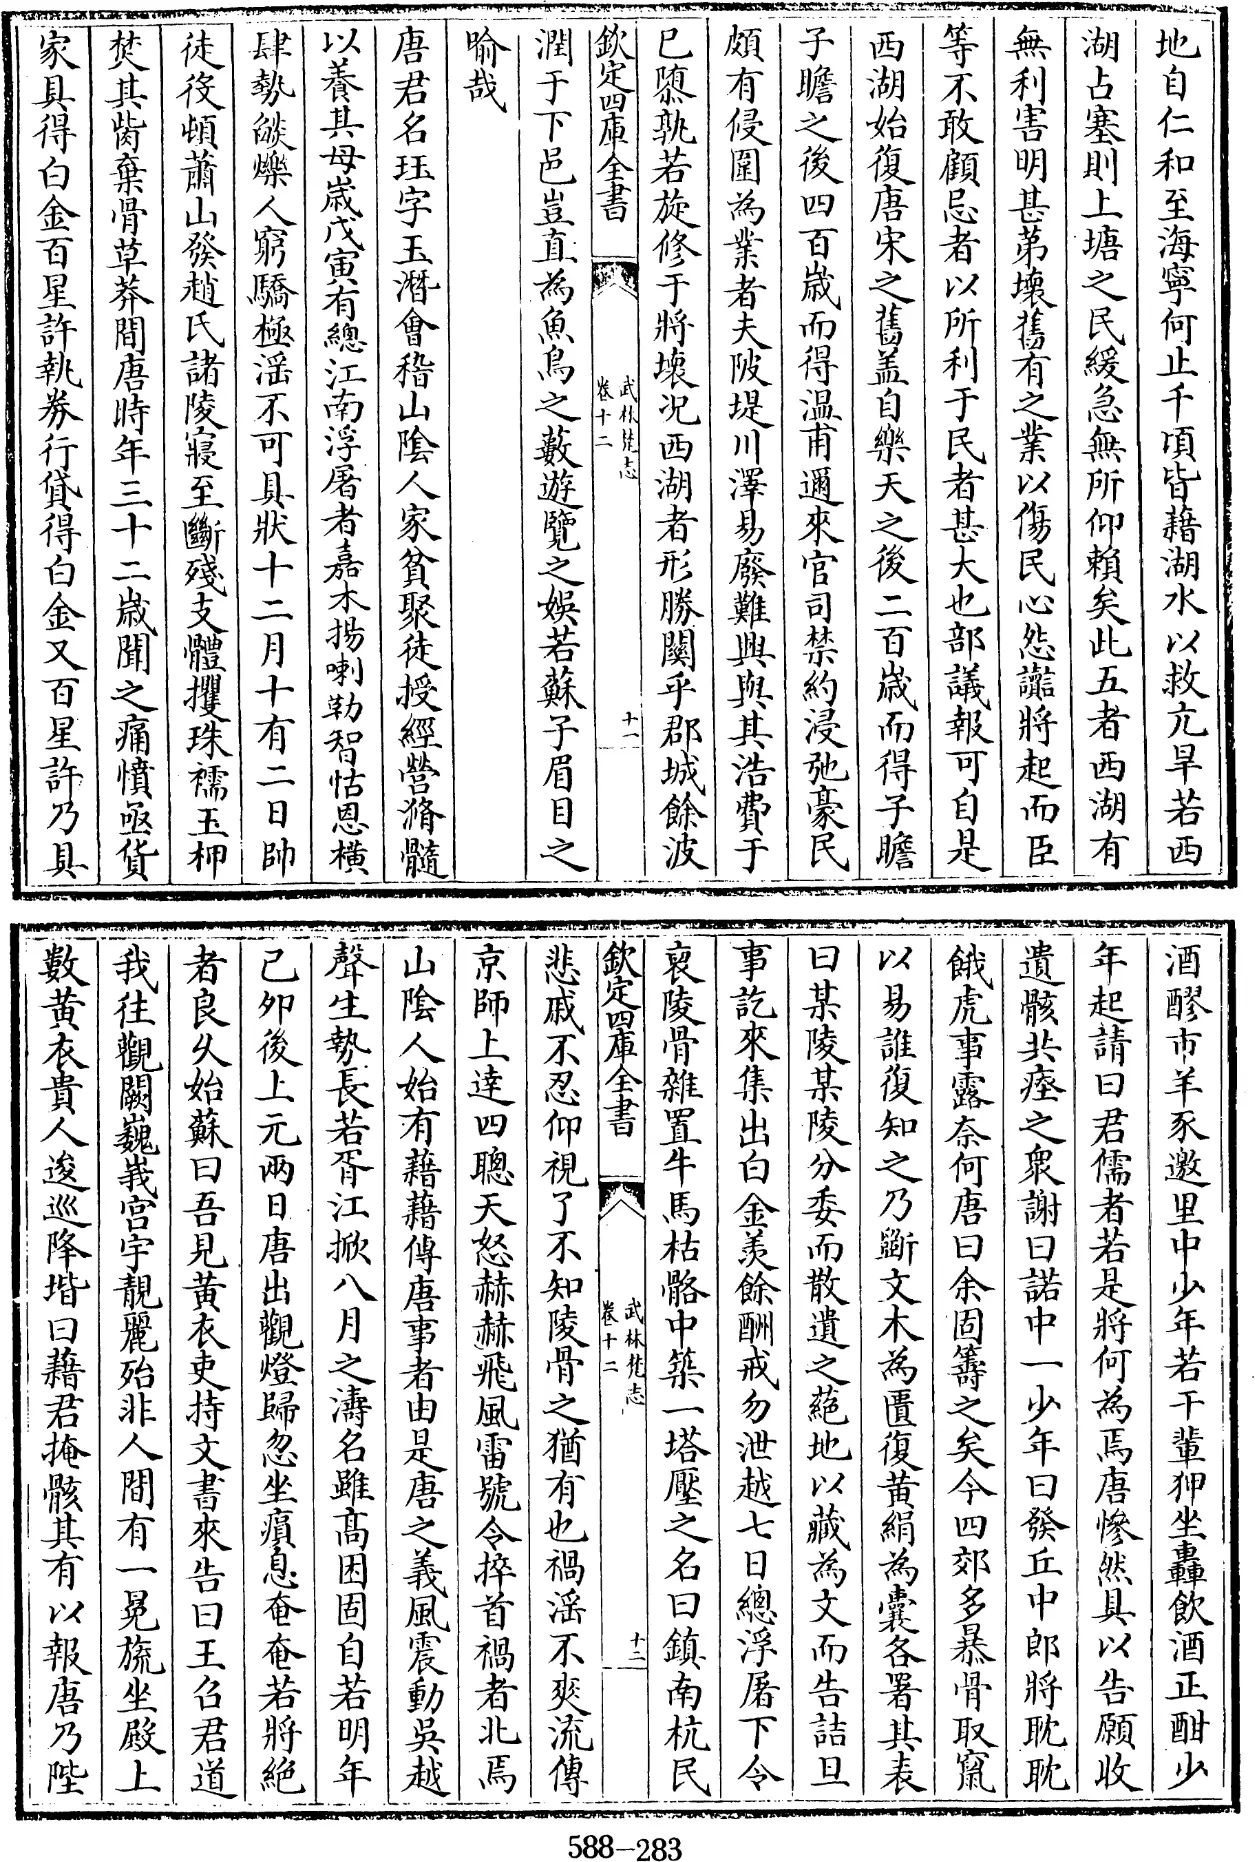 地自仁和至海寧何止千頃皆藉湖水以救亢旱若西
湖占塞則上塘之民緩急無所仰賴矣此五者西湖有
無利害明甚第壞舊有之業以傷民心怨讟將起而臣
等不敢顧忌者以所利于民者甚大也部議報可自是
西湖始復唐宋之舊盖自樂天之後二百歲而得子瞻
子瞻之後四百歲而得温甫邇來官司禁約浸弛豪民
頗有侵圍為業者夫陂堤川澤易廢難興與其浩費于
已隳孰若旋修于將壞况西湖者形勝關乎郡城餘波
欽定四庫全書
武林梵志
卷十二
十一
潤于下邑豈直為魚鳥之藪遊覽之娛若蘇子眉目之
喻哉
唐君名珏字玉潛會稽山陰人家貧聚徒授經營滫髓
以養其母歲戊寅有總江南浮屠者嘉木揚喇勒智怙恩橫
肆勢燄爍人窮驕極淫不可具狀十二月十有二日帥
徒役頓蕭山發趙氏諸陵寢至斷殘支體攫珠襦玉柙
焚其胔棄骨草莽間唐時年三十二歲聞之痛憤亟貨
家具得白金百星許執券行貸得白金又百星許乃具
酒醪市羊豕邀里中少年若干輩狎坐轟飲酒正酣少
年起請曰君儒者若是將何為焉唐慘然具以告願收
遺骸共瘞之衆謝曰諾中一少年曰發丘中郎將耽耽
餓虎事露奈何唐曰余固籌之矣今四郊多暴骨取竄
以易誰復知之乃斲文木為匱復黄絹為囊各署其表
曰某陵某陵分委而散遺之蕝地以藏為文而告詰旦
事訖來集出白金羨餘酬戒勿泄越七日總浮屠下令
裒陵骨雜置牛馬枯骼中築一塔壓之名曰鎮南杭民
欽定四庫全書
武林梵志
卷十二
十二
悲戚不忍仰視了不知陵骨之猶有也禍淫不爽流傳
京師上達四聰天怒赫赫飛風雷號令捽首禍者北焉
山陰人始有藉藉傳唐事者由是唐之義風震動吳越
聲生勢長若胥江掀八月之濤名雖高困固自若明年
己夘後上元兩日唐出觀燈歸忽坐殞息奄奄若將絶
者良乆始蘇曰吾見黄衣吏持文書來告曰王召君道
我往觀闕巍峩宫宇靚麗殆非人間有一冕旒坐殿上
數黄衣貴人逡巡降堦曰藉君掩骸其有以報唐乃陛
588-283